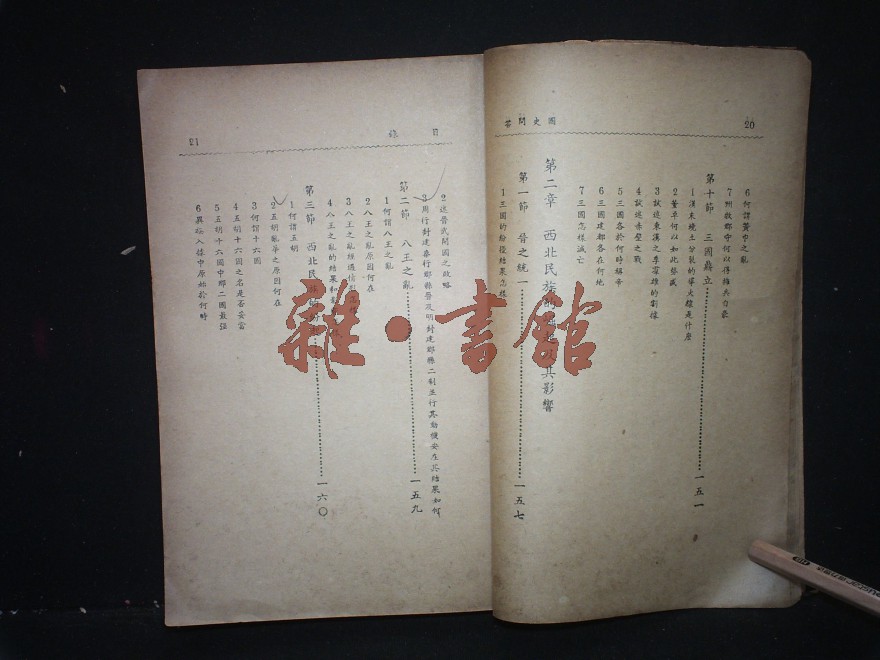 20
國史問答
6 何謂黃巾之亂
7 州牧郡守何以得擁兵自衆
第十節 三國鼎立 一五一
1 漢末統土分裂的導火線是什麼
2 董卓何以如此勢盛
3 試述東漢之季羣雄的割據
4 試述赤壁之戰
5 三國各於何時稱帝
6 三國建都各在何地
7 三國怎樣滅亡
第二章 西北民族 其影響
第一節 晉之統一 一五七
1 三國的紛擾結果怎樣
目錄
21
2 述晉武開國之政略
3 周行封建秦行郡縣晉及明封建郡縣二制並行其動機安在其結果如何
第二節 八王之亂 一五九
1 何謂八王之亂
2 八王之亂原因何在
3 八王之亂經過情形怎樣
4 八王之亂的結果
第三節 西北民族 一六〇
1 何謂五胡
2 五胡亂華之原因何在
3 何謂十六國
4 五胡十六國之名是否妥當
5 五胡十六國中那二國最強
6 異族入據中原始於何時
雜·書館
HB